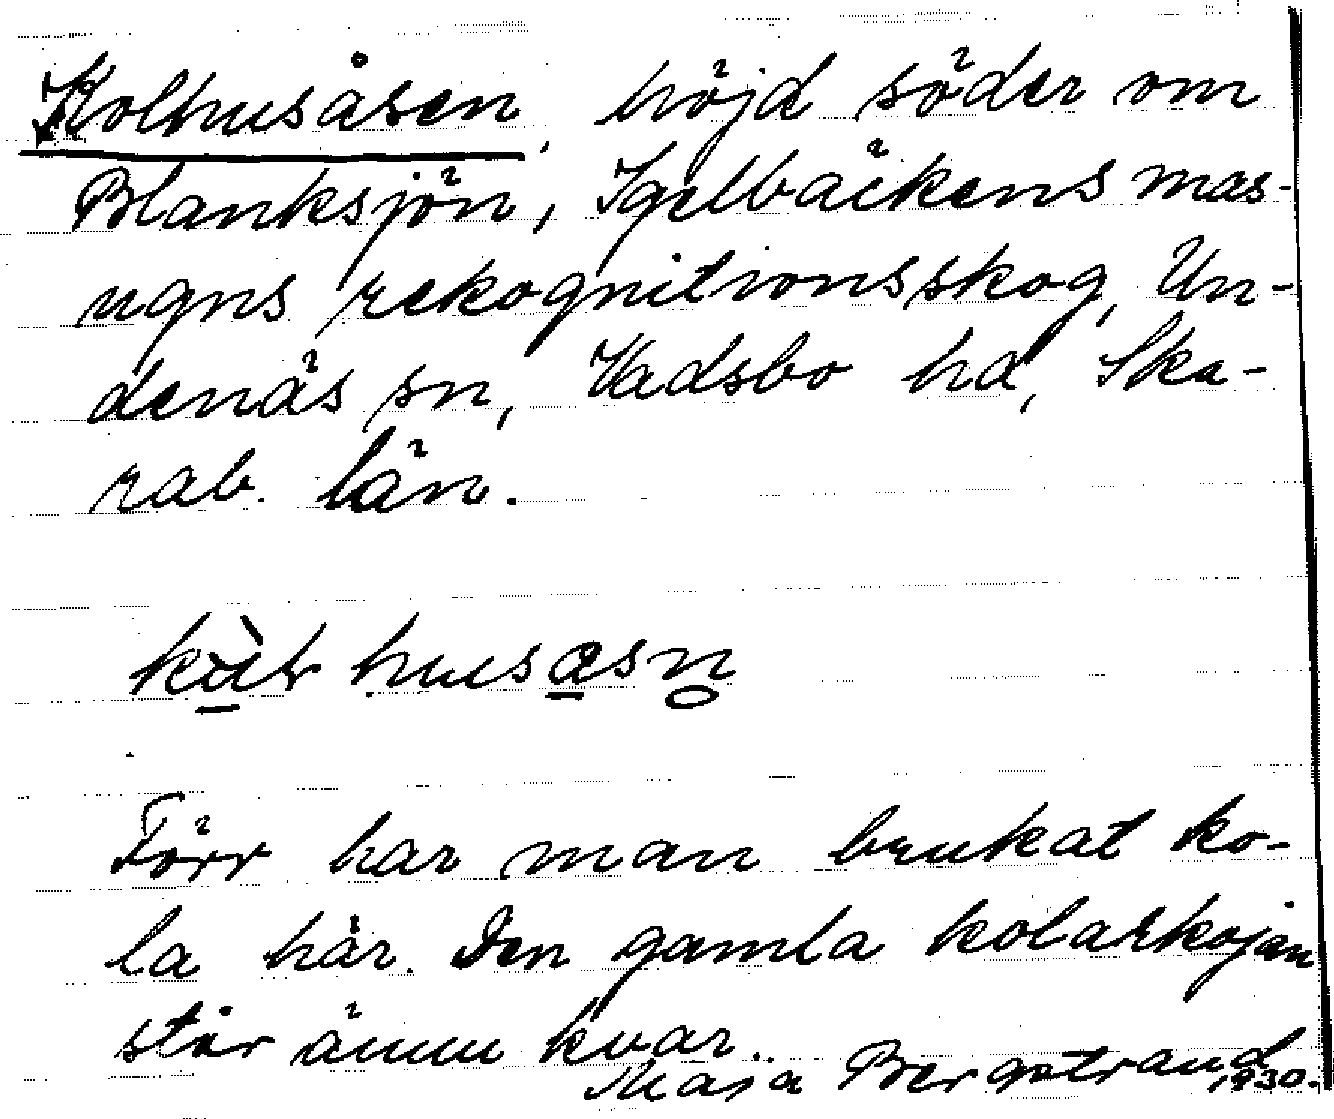 Kolhusåsen, höjd söder om
Blanksjön, Igelbäckens mas-
ugns rekognitionsskog, Un-
denäs sn, Vadsbo hd, Ska-
rab. län.
husåsn
Förr har man brukat ko-
la här. Den gamla kolarkojan
står ännu kvar.
Maja Bergstrand 1930.